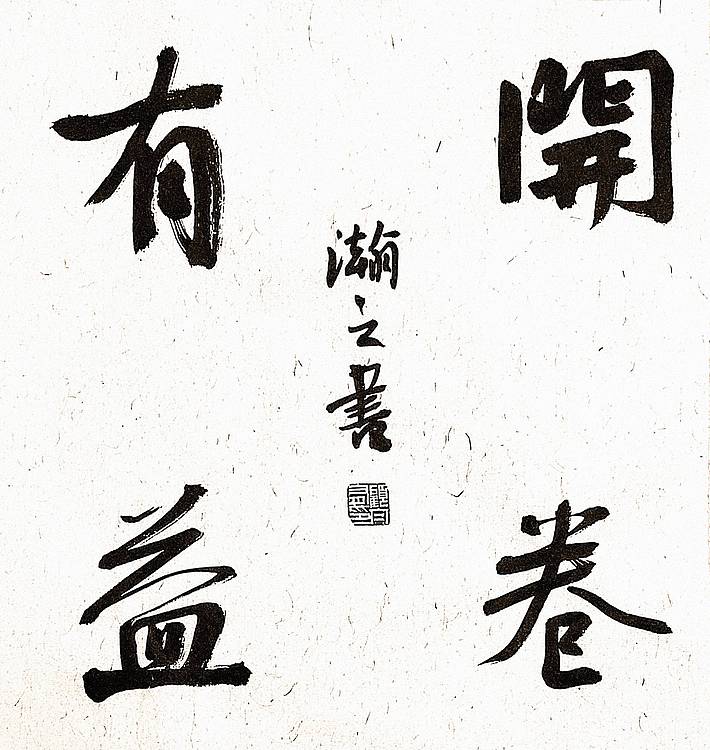 開卷
有益
瀚之書